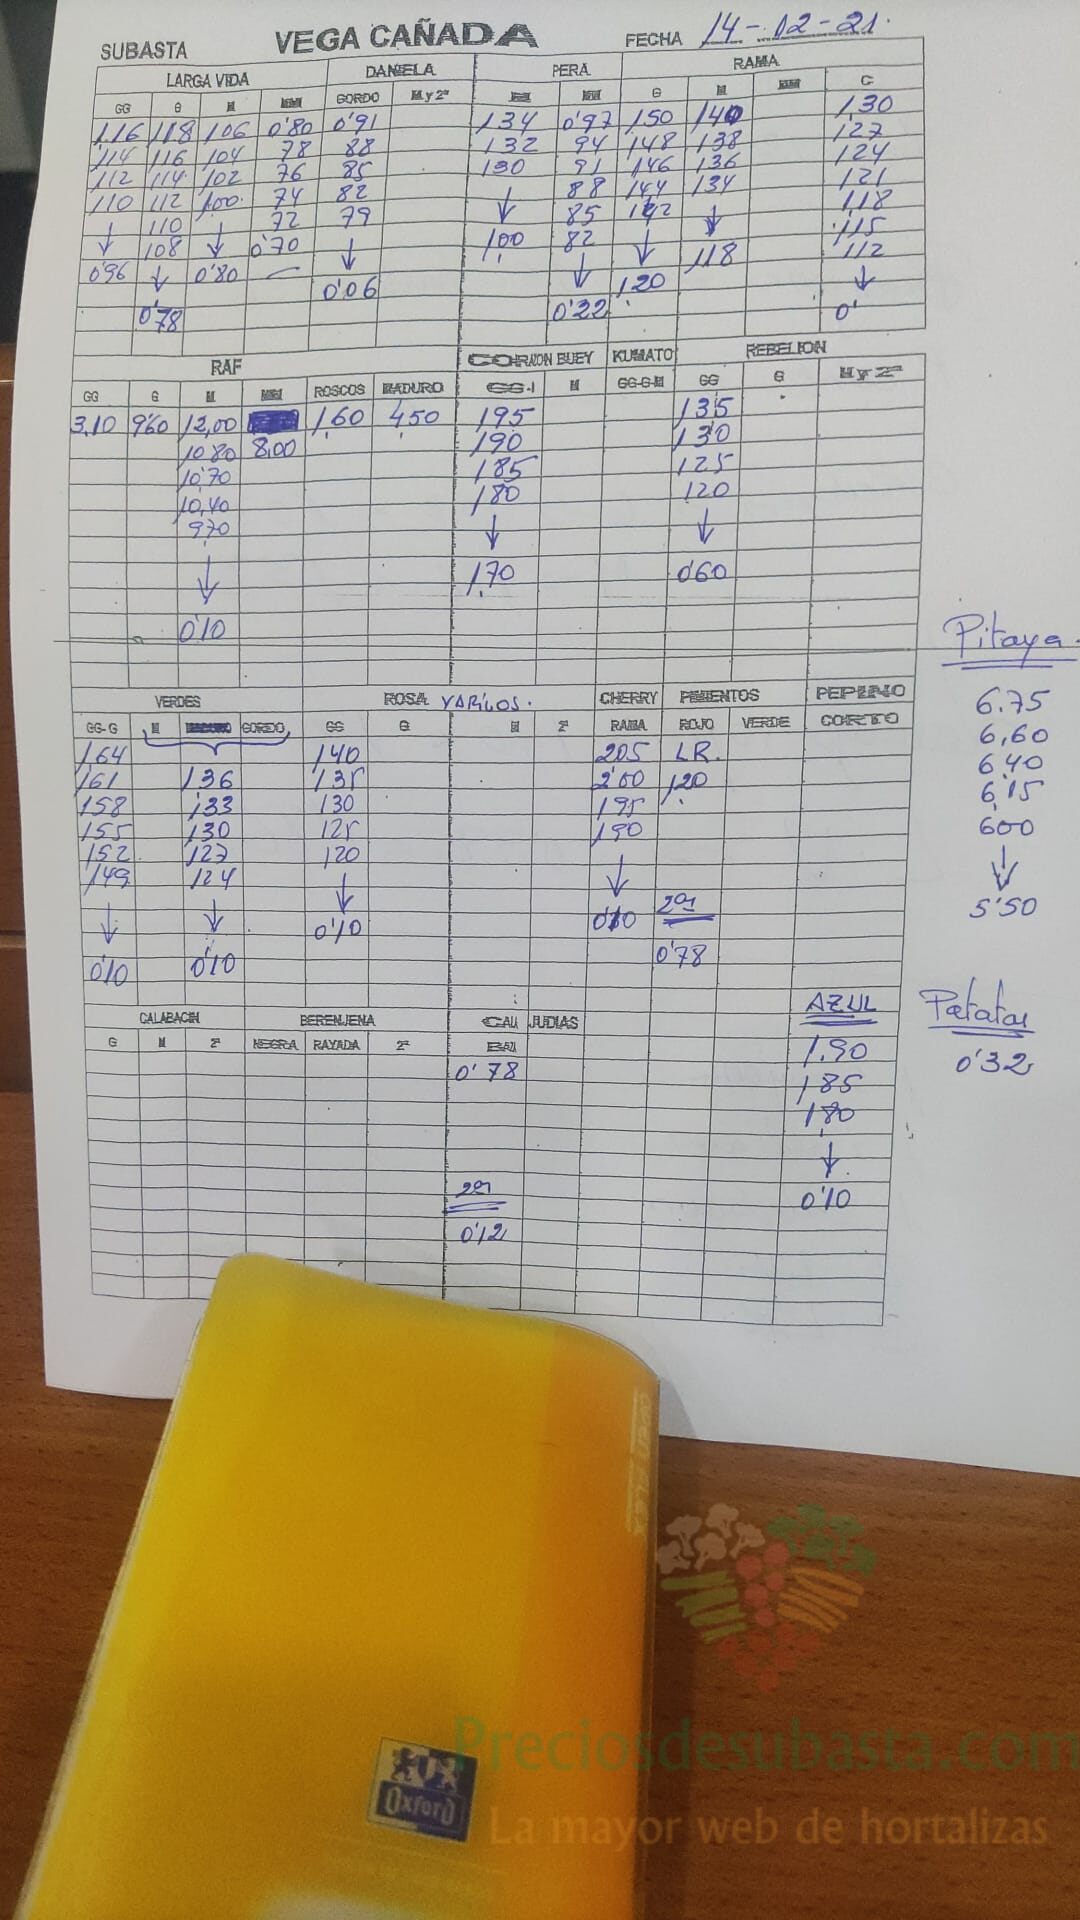 SUBASTA VEGA CAÑADA FECHA 14-12-21.
LARGA VIDA DANIELA PERA RAMA
GG G M MM GORDO M y 2ª M MM G M MM C
1,16 118 106 0'80 0'91 134 0'97 150 140 1,30
114 116 104 78 88 132 94 148 138 127
112 114 102 76 85 130 91 146 136 124
110 112 100 74 82 ↓ 88 144 134 121
↓ 110 ↓ 72 79 100 85 142 ↓ 118
0'96 108 0'80 0'70 ↓ 82 ↓ 118 115
↓ 0'06 ↓ 120 112
0'78 0'22 ↓
0'
RAF CORAZON BUEY KUMATO REBELION
GG G M MM ROSCOS MADURO GG-I M GG-G-M GG G M y 2ª
3,10 9'60 12,00 1,60 4,50 195 135
10'80 8,00 190 130
10'70 185 125
10,40 180 120
9'70 ↓ ↓
↓ 1,70 0'60
0'10
VERDES ROSA VARIOS. CHERRY PIMIENTOS PEPINO
GG-G M MADURO GORDO GG G M 2ª RAMA ROJO VERDE CORTO
164 140 205 LR.
161 136 135 2'00 1,20
158 133 130 195
155 130 125 190
152 127 120 ↓
149 124 ↓ 0'10 2as
↓ ↓ 0'10 0'78
0'10 0'10
CALABACIN BERENJENA CALI JUDIAS AZUL
G M 2ª NEGRA RAYADA 2ª 1,90
0'78 185
180
↓
2as 0'10
0'12
Pitaya.
6.75
6,60
6,40
6,15
6,00
↓
5'50
Patatas
0'32
Oxford
Preciosdesubasta.com
La mayor web de hortalizas